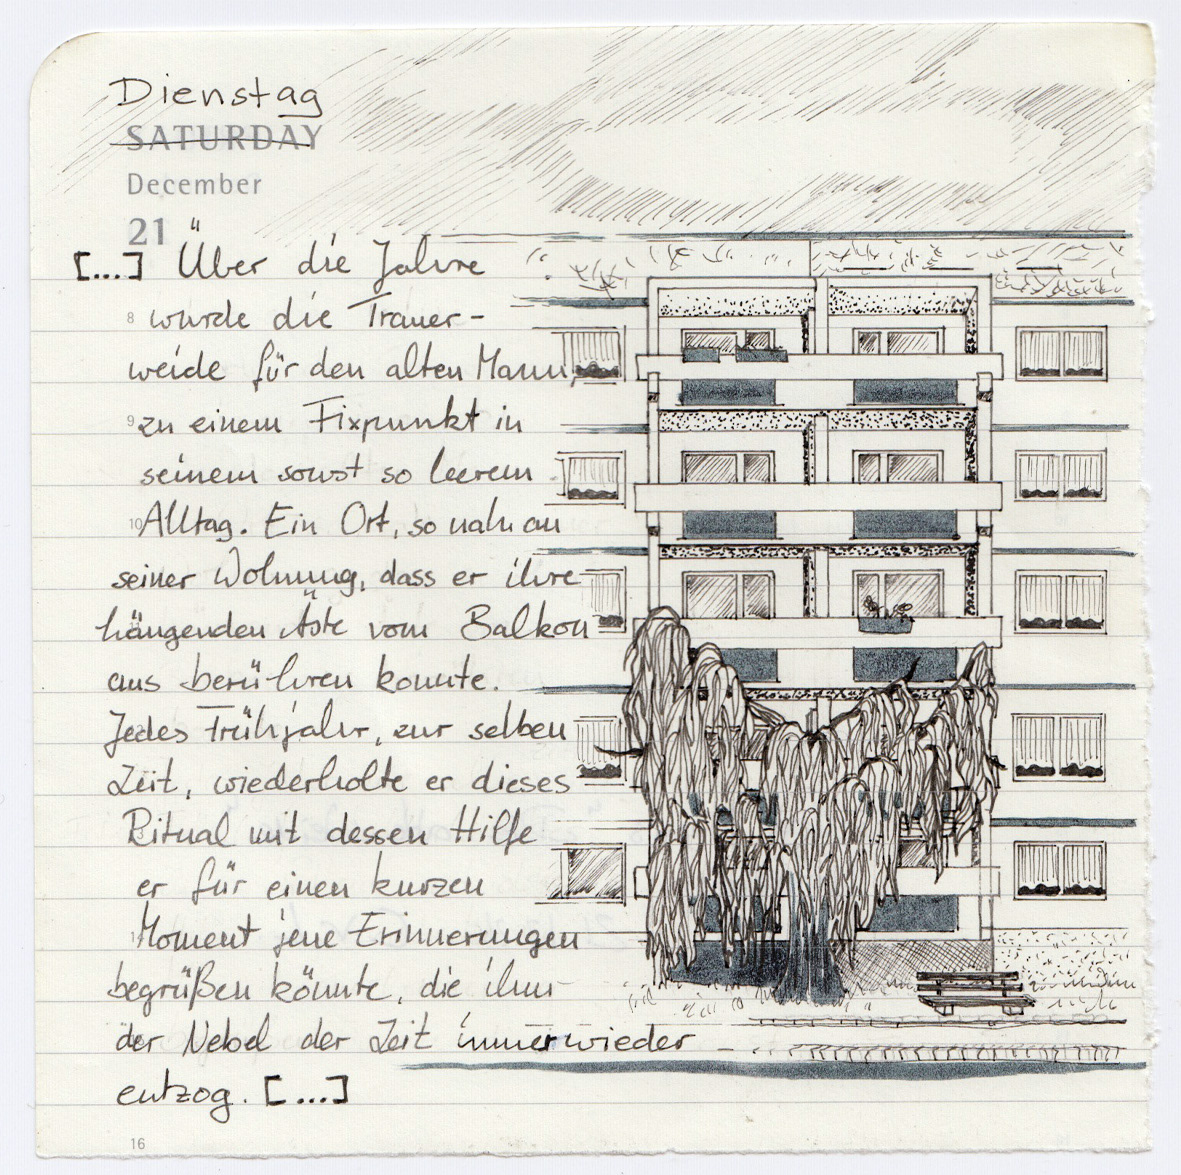 Dienstag
SATURDAY
December
21
[...] Über die Jahre
8 wurde die Trauer-
weide für den alten Mann,
9 zu einem Fixpunkt in
seinem sonst so leerem
10 Alltag. Ein Ort, so nah an
seiner Wohnung, dass er ihre
hängenden Äste vom Balkon
aus berühren konnte.
Jedes Frühjahr, zur selben
Zeit, wiederholte er dieses
Ritual mit dessen Hilfe
er für einen kurzen
Moment jene Erinnerungen
begrüßen könnte, die ihm
der Nebel der Zeit immer wieder
entzog. [...]
16